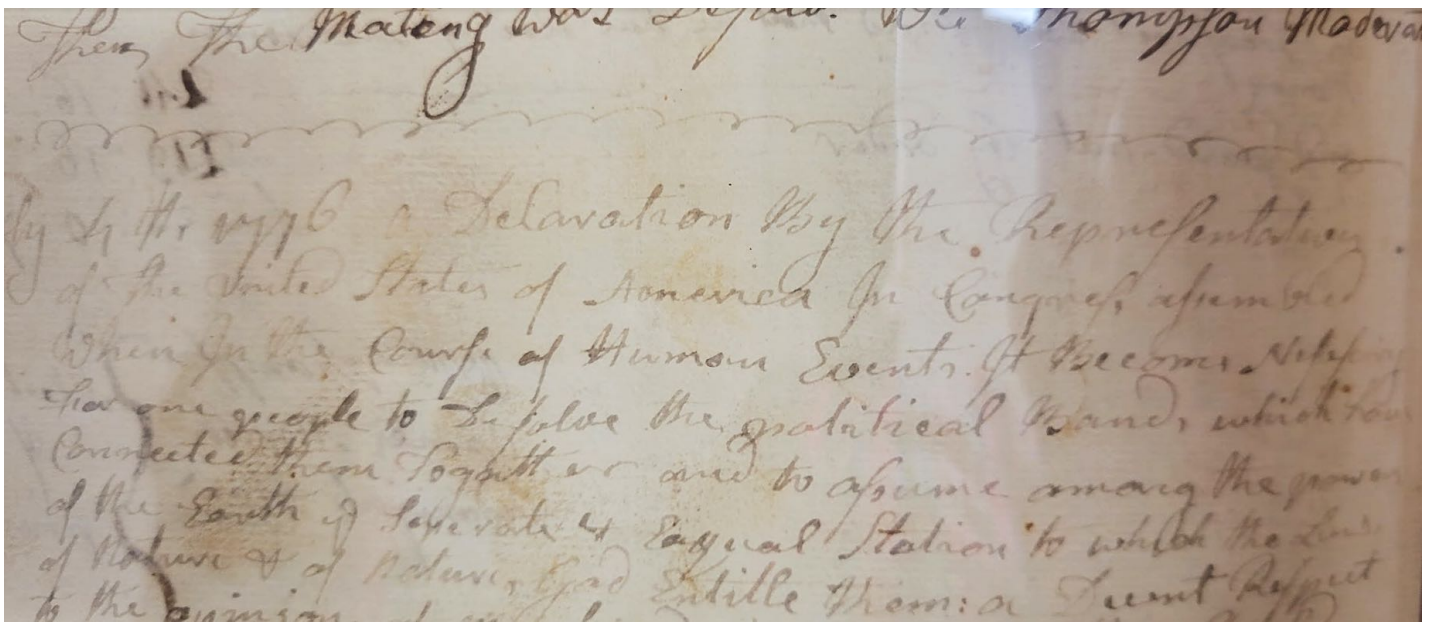 Then The Mateng was Desolv. Thompson Moderat
4 th 1776 a Delaration By the Representatives
of the United States of America In Congress assumbled
When In the Course of Human Events. It Becomes Nessesary
For one people to Desolve the political Bands which have
Connected them Togather and to assume among the power
of the Earth Seperate & Eaqual Station to which the Laws
of Nature & of Natures God Entitle them: a Decent Respect
to the opinions of